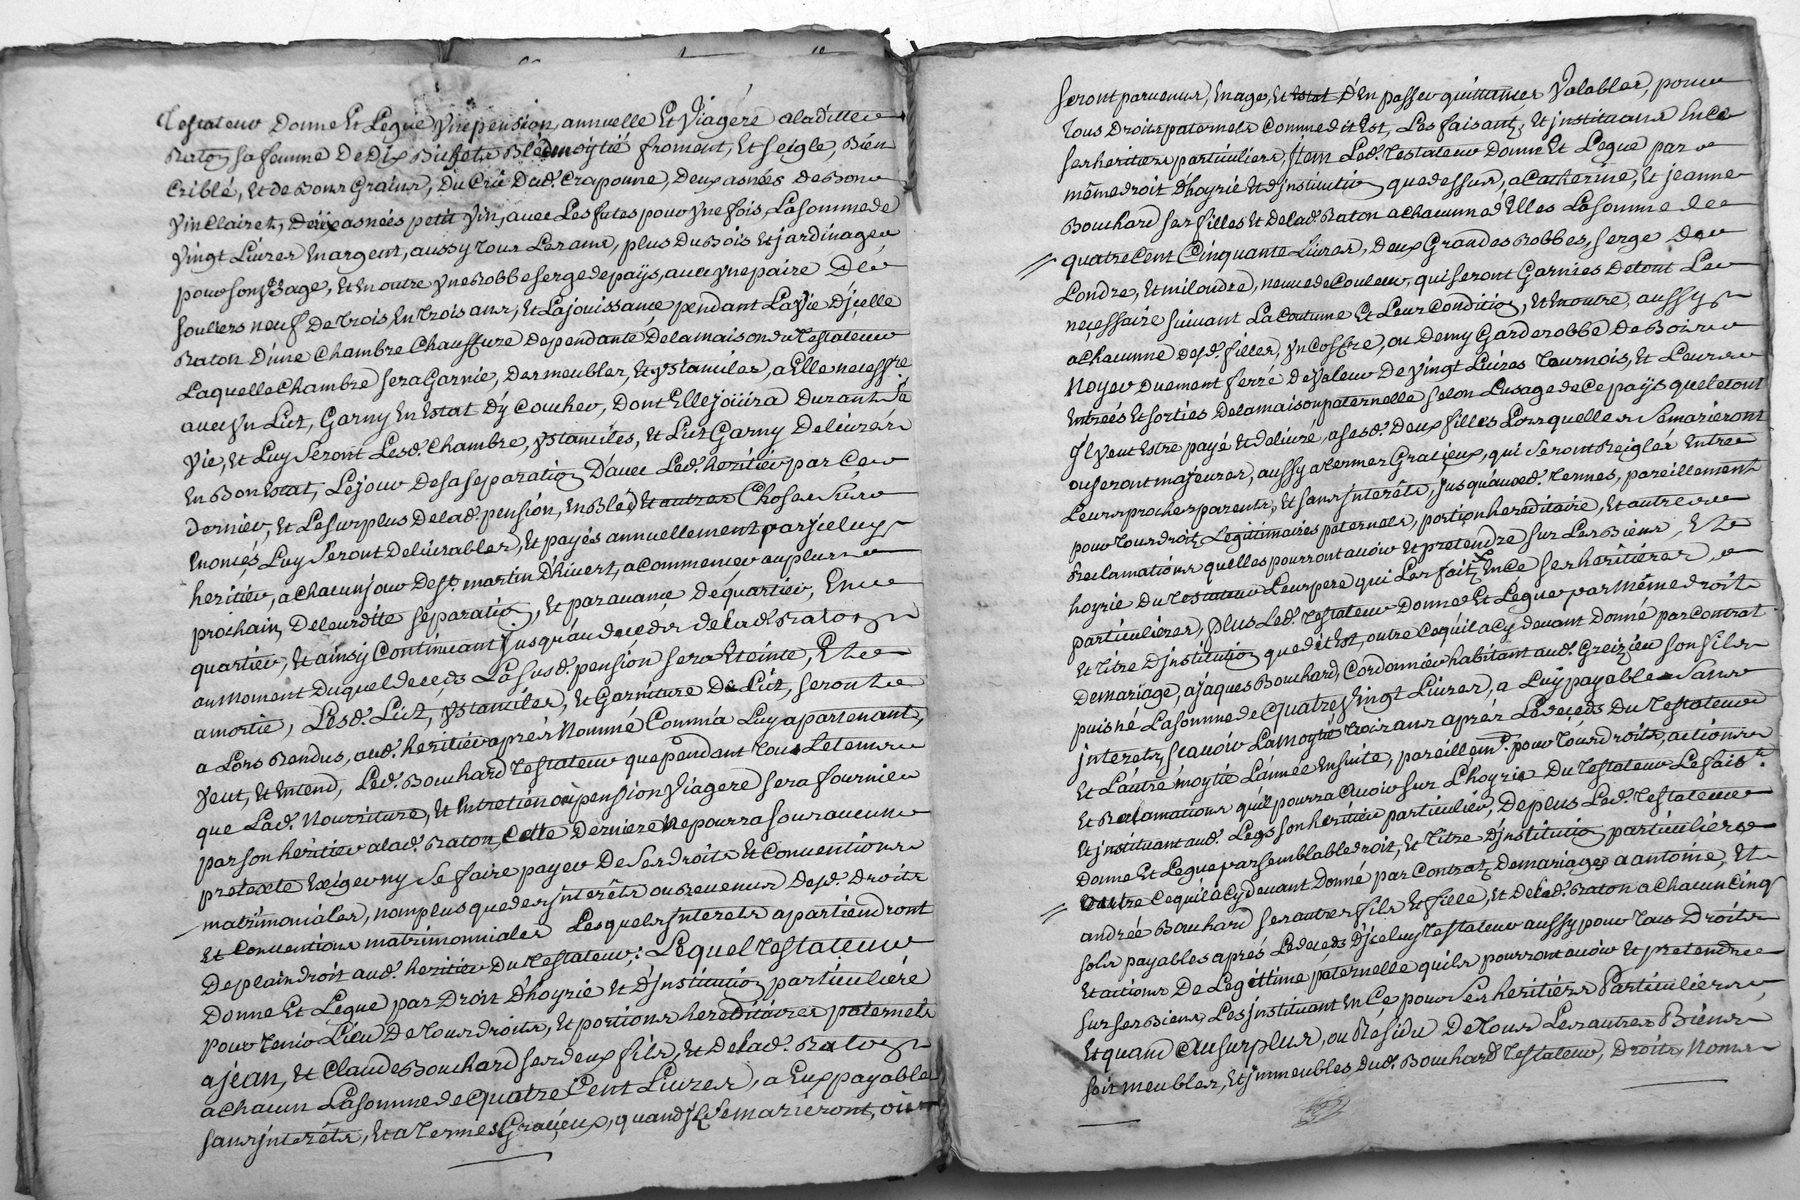 Testateur Donne Et Legue Vne pension, annuelle Et Viagere aladitte
Raton sa femme De Dix Bichets Bled moytié froment, Et Seigle, Bien
Criblé, Et de Bons Grains, Du Crû Dud. Crapoune, Deux asnées de Bon
Vin Clairet, Deux asnées petit Vin, avec Les futes pour Vne fois, La Somme de
Vingt Livres En argent, aussy Tous Les ans, plus Du Bois Et jardinage
pour Son Vsage, Et En outre Vne Robbe serge de païs, avec Vne paire De
Souliers neuf De Trois, En Trois ans, Et La joüissance pendant La Vie D'jcelle
Raton D'une Chambre Chauffure dependante De la maison du Testateur
Laquelle Chambre Sera Garnie, Des meubles, Et Vstanciles, a Elle necessre.
avec Vn Lict, Garny En Estat D'y Coucher, Dont Elle joüira Durant Sa
Vie, Et Luy Seront Lesd. Chambre, Vstanciles, Et Lict Garny Delivrés
En Bon Estat, Le jour De sa separation D'avec Led. heritier par Ce
dernier, Et Le Surplus De lad. pension, En Bled Et autres Choses Sus
Enoncés Luy Seront Delivrables, Et payés annuellement par jceluy
heritier, a chacun jour De St. martin D'hivert, a Commencer au plus
prochain De leurditte Separation, Et par avance De quartier, En
quartier, Et ainsy Continuant jusqu'au decedes de lad. Raton
au moment Duquel deceds La susd. pension sera Eteinte, Et
amortie, Lesd. Lict, Vstanciles, Et Garniture De Lict, Seront
a Lors Rendus, aud. heritier aprés Nommé Comm'a Luy apartenant,
Veut, Et Entend, Led. Bouchard Testateur que pendant Tous Le tems
que Lad. Nourriture, Et Entretien ou pension Viagere sera fournie
par son heritier a lad. Raton, Cette Derniere Ne pourra Sous aucun
pretexte Exiger ny Se faire payer De Ses droits Et Conventions
matrimoniales, nomplus que des interêts ou Revenus Desd. Droits
Et Conventions matrimonniales Lesquels jnterets apartiendront
De plain Droit aud. heritier Du Testateur; Lequel Testateur
Donne Et Legue par Droit D'hoyrie Et D'jnstitution particuliére
pour Tenir Lieu De Tous droits, Et portions hereditaires paternels
a jean, Et Claude Bouchard Ses deux fils, Et De lad. Raton
a Chacun La somme de Quatre Cent Livres, a Eux payable
Sans jnterêts, Et a Termes Gracieux, quand jls Se mariéront, ou
Seront parvenus, En age, Et Estat D'En passer quittances Valables, pour
Tous Droits paternels Comme dit Est, Les faisant, Et jnstituans En Ce
Ses heritiers particuliers, jtem Led. Testateur Donne Et Legue par
même droit D'hoyrie Et D'jnstitution que dessus, a Catherine, Et jeanne
Bouchard Ses filles Et De lad. Raton a chacunne d'Elles La Somme de
quatre Cent Cinquante Livres, Deux Grandes Robbes, Serge De
Londre, Et miloudre, neuve de Couleur, qui Seront Garnies De tout Le
neçessaire Suivant La Coutume Et Leur Condition, Et En outre, aussy
a Chacunne Desd. filles, Vn Coffre, ou Demy Garderobbe De Bois
Noyer Duement ferré De Valeur De Vingt Livres Tournois, Et Leurs
Entrées Et Sorties De la maison paternelle Selon L'usage de Ce païs que Le tout
jl Veut Estre payé Et delivré, a Sesd. Deux filles Lorsquelles Se mariéront
ou Seront majeures, aussy a Termes Gracieux, qui Seront Reiglés Entre
Leurs proches parents, Et Sans jnterêts, jusqu'auxd. Termes, pareillement
pour Tous droits Legitimaires paternels, portion hereditaire, Et autres
Reclamations quelles pourront avoir Et pretendre sur Les Biens, Et
hoyrie Du Testateur Leur pere qui Les fait En Ce Ses heritières
particuliéres, plus Led. Testateur Donne Et Legue par Même droit
Et Titre D'jnstitution que dit Est, outre Ce qu'il a Cy devant Donné par Contrat
De mariage, a jaques Bouchard, Cordonnier habitant aud. Greizieu Son fils
puisné La Somme de Quatre Vingt Livres, a Luy payable Sans
jnterats, Scavoir La Moytié Trois ans aprés Le deceds Du Testateur
Et L'autre moytié L'année En suite, pareillemt. pour Tous droits, actions
Et Reclamations qu'il pourra avoir Sur L'hoyrie Du Testateur Le faist.
Et jnstituant aud. Legs Son héritier particulier, De plus Led. Testateur
Donne Et Legue par Semblable droit, Et Titre D'jnstitution particulière
outre Ce qu'il a Cy devant Donné par Contrat De mariage a antoine, Et
andrée Bouchard Ses autres fils Et fille, Et De lad. Raton a Chacun Cinq
Sols payables aprés Le deceds D'jceluy Testateur aussy pour Tous Droits
Et actions De Legittime paternelle qu'ils pourront avoir Et pretendre
Sur Ses Biens, Les jnstituant En Ce pour Ses heritiérs Particuliérs
Et quand Au Surplus, ou Résidu De Tous Les autres Biens
Soit meubles, Et jmmeubles Dud. Bouchard Testateur, Droits, Noms